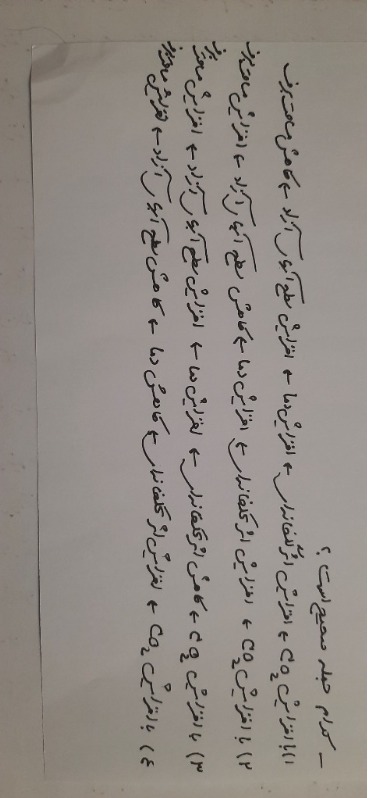 - کدام جمله صحیح است؟
۱) با افزایش CO2 ← افزایش اثر گلخانه‌ای ← افزایش دما ← افزایش سطح آبهای آزاد ← کاهش مساحت برف
۲) با افزایش CO2 ← افزایش اثر گلخانه‌ای ← افزایش دما ← کاهش سطح آبهای آزاد ← افزایش مساحت برف
۳) با افزایش CO2 ← کاهش اثر گلخانه‌ای ← افزایش دما ← افزایش سطح آبهای آزاد ← افزایش مساحت برف
۴) با افزایش CO2 ← افزایش اثر گلخانه‌ای ← کاهش دما ← کاهش سطح آبهای آزاد ← افزایش مساحت برف